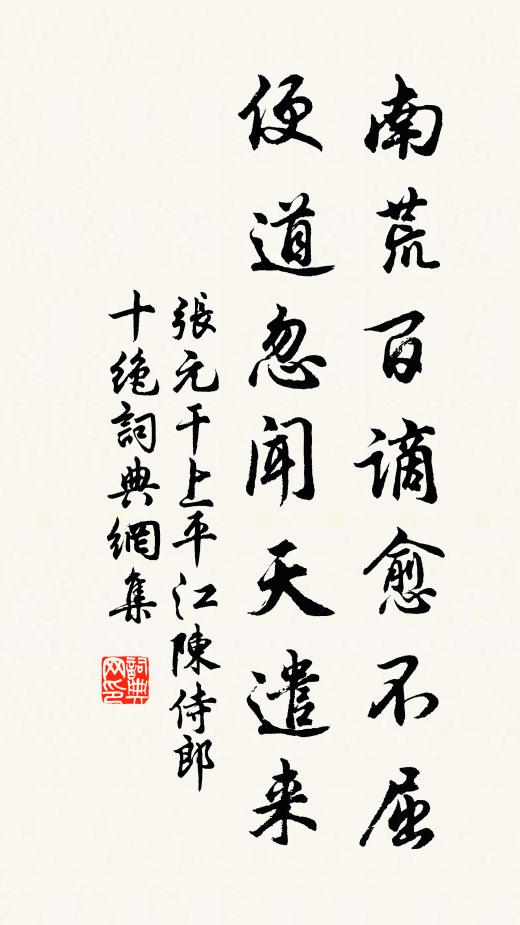 南荒百謫愈不屈
便道忽聞天遣来
張元干上平江陳侍郎
十绝詞典網集
詞典网印